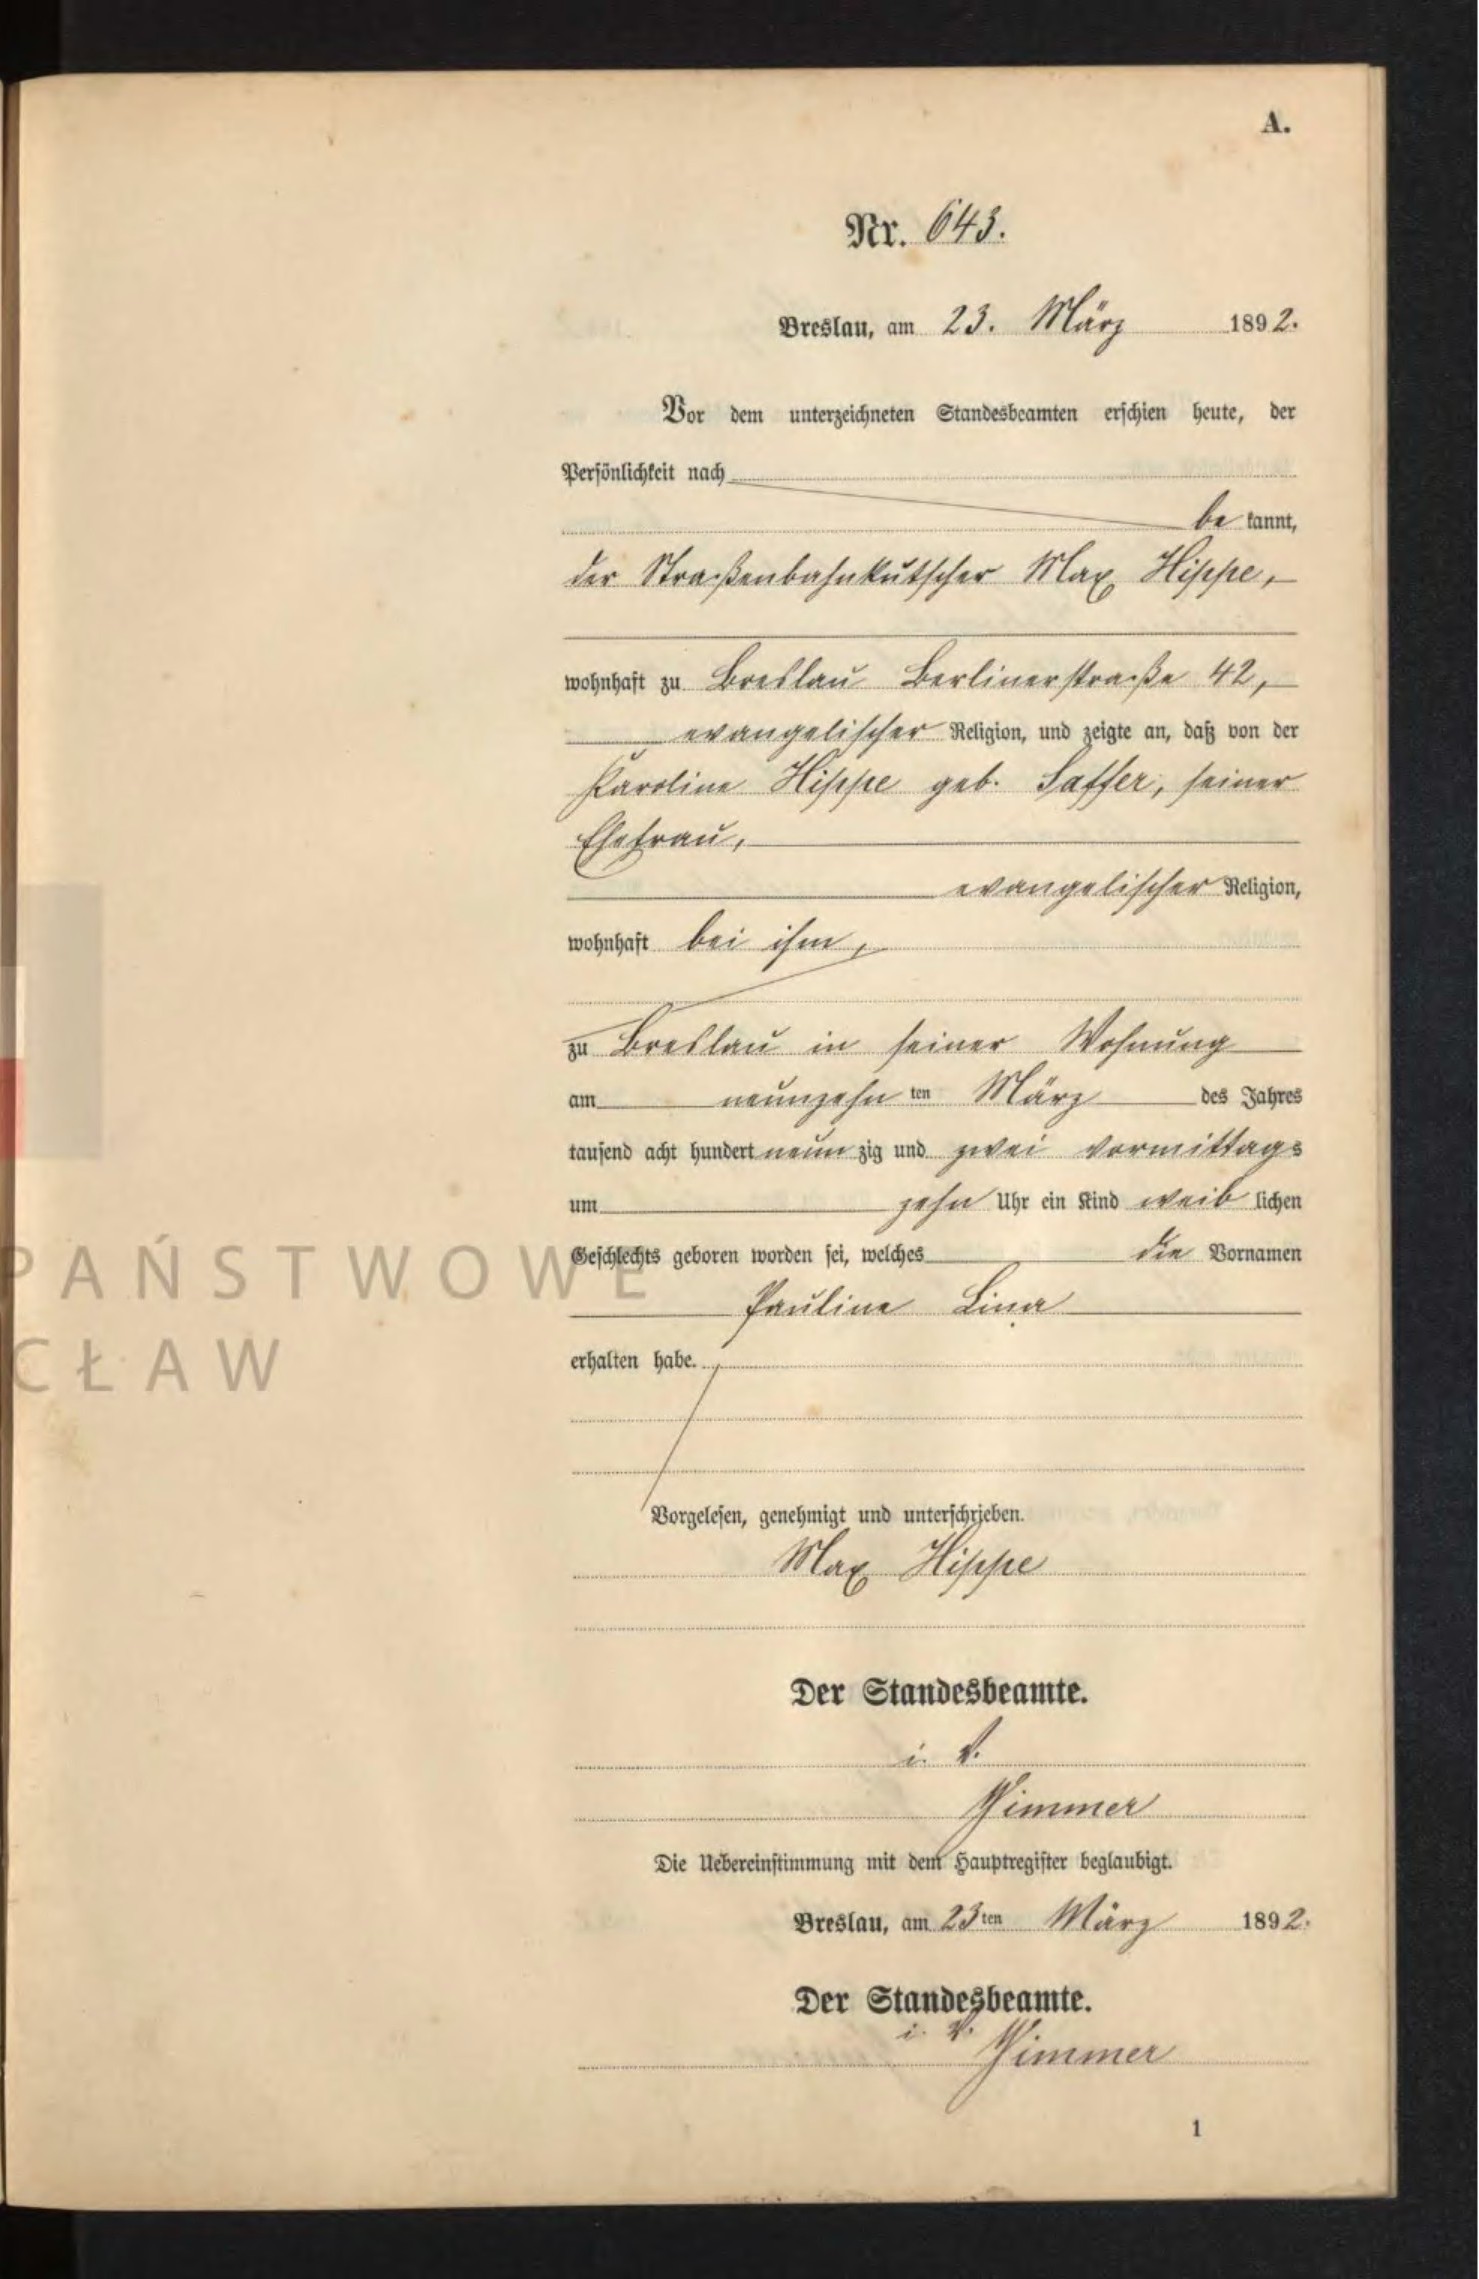 A.
Nr. 643.
Breslau, am 23. März 1892.
Vor dem unterzeichneten Standesbeamten erschien heute, der
Persönlichkeit nach
be kannt,
der Straßenbahnkutscher Max Hippe,
wohnhaft zu Breslau Berlinerstraße 42,
evangelischer Religion, und zeigte an, daß von der
Karoline Hippe geb. Saffer, seiner
Ehefrau,
evangelischer Religion,
wohnhaft bei ihm,
zu Breslau in seiner Wohnung
am neunzehn ten März des Jahres
tausend acht hundert neun zig und zwei vormittags
um zehn Uhr ein Kind weib lichen
Geschlechts geboren worden sei, welches die Vornamen
Pauline Lina
erhalten habe.
Vorgelesen, genehmigt und unterschrieben.
Max Hippe
Der Standesbeamte.
i. V.
Die Uebereinstimmung mit dem Hauptregister beglaubigt.
Breslau, am 23ten März 1892.
Der Standesbeamte.
i. V.
1
PAŃSTWOWE
CŁAW